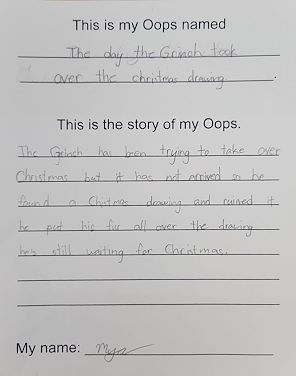 This is my Oops named
The day the Grinch took
over the christmas drawing.
This is the story of my Oops.
The Grinch has been trying to take over
Christmas but it has not arrived so he
found a Chirtmas drawing and ruined it
he put his fur all over the drawing
he's still waiting for Christmas.
My name: